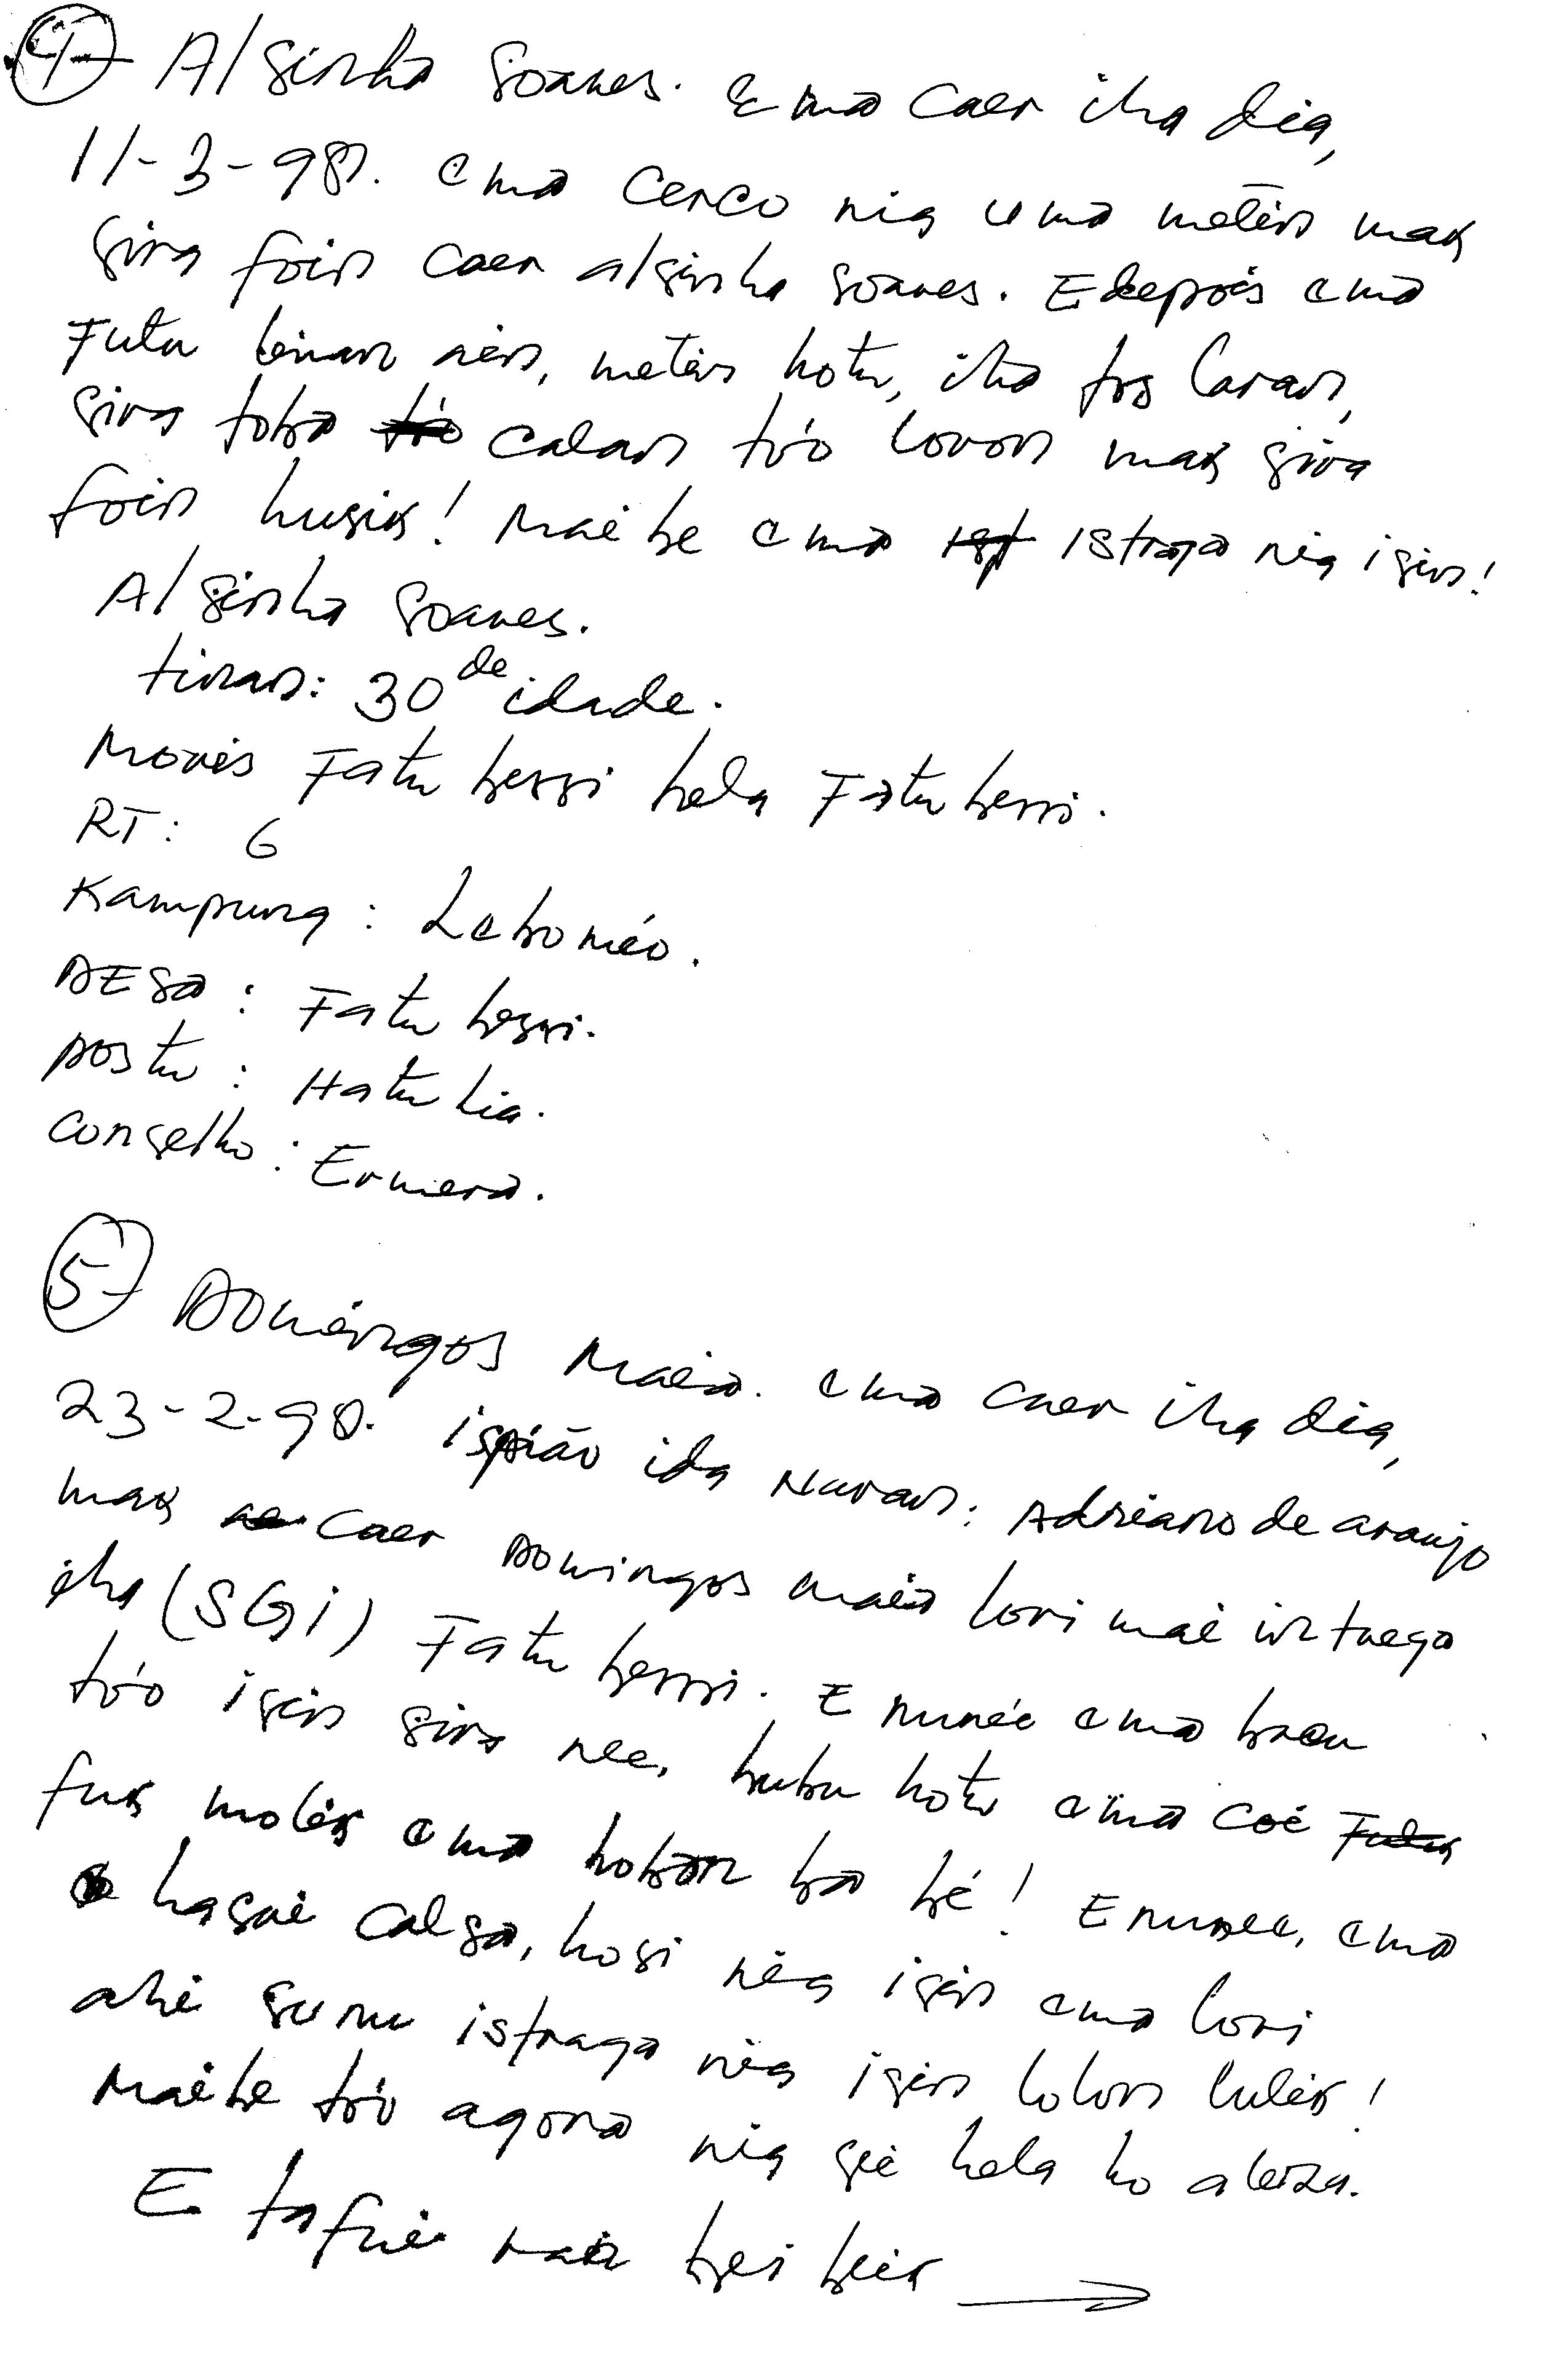 4- Alsinha Soares. Ema caer iha dia,
11-3-98. ema cerco nia uma metin mak
sira foin caer alsinha soares. Edepois ema
Futu liman ain, metin hotu, iha bs laran,
sira toba calan tó'o loron mak sira
foin husik! Maibe ema istraga nia isin!
Alsinha Soares.
tinan: 30 de idade.
Moris Fatu bessi hela Fatu bessi.
RT: 6
Kampung: Leboméo.
DESA: Fatu bessi.
POSTU: Hatu lia.
conselho: Ermera.
5- Domingos Maia. ema caer iha dia,
23-2-98. ispião ida Naran: Adriano de araujo
mak caer Domingos maia lori mai intrega
iha (SGi) Fatu bessi. E nunée ema baku
tó'o isin sira nee, bubu hotu ema coé
fuk molik ema hoban ba bé! E nunee, ema
hasai calsa, hosi nia isin ema lori
ahi sunu istraga nia isin lolon lulik!
Maibe tó'o agora nia sei hela ho aleiza.
E tafui nain bei beik →